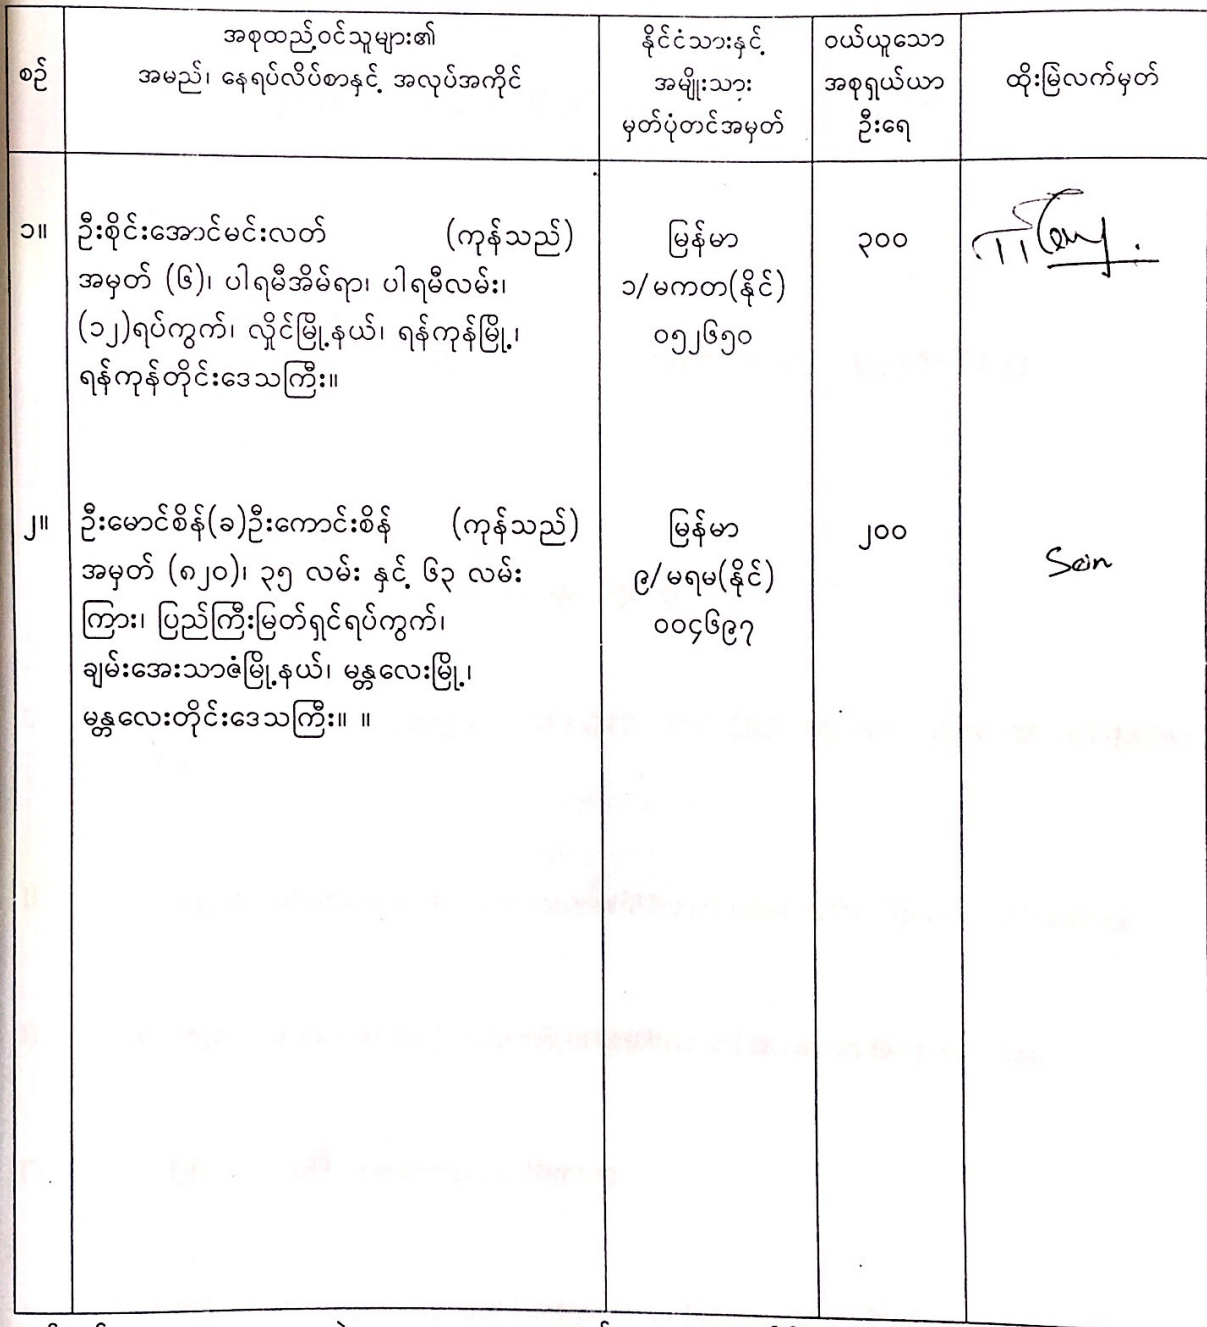 စဉ်
အစုထည့်ဝင်သူများ၏
အမည်၊ နေရပ်လိပ်စာနှင့် အလုပ်အကိုင်
နိုင်ငံသားနှင့်
အမျိုးသား
မှတ်ပုံတင်အမှတ်
ဝယ်ယူသော
အစုရှယ်ယာ
ဦးရေ
ထိုးမြဲလက်မှတ်
၁။
ဦးစိုင်းအောင်မင်းလတ် (ကုန်သည်)
အမှတ် (၆)၊ ပါရမီအိမ်ရာ၊ ပါရမီလမ်း၊
(၁၂)ရပ်ကွက်၊ လှိုင်မြို့နယ်၊ ရန်ကုန်မြို့၊
ရန်ကုန်တိုင်းဒေသကြီး။
မြန်မာ
၁/မကတ(နိုင်)
၀၅၂၆၅၀
၃၀၀
၂။
ဦးမောင်စိန်(ခ)ဦးကောင်းစိန် (ကုန်သည်)
အမှတ် (၈၂၀)၊ ၃၅ လမ်း နှင့် ၆၃ လမ်း
ကြား၊ ပြည်ကြီးမြတ်ရှင်ရပ်ကွက်၊
ချမ်းအေးသာဇံမြို့နယ်၊ မန္တလေးမြို့၊
မန္တလေးတိုင်းဒေသကြီး။ ။
မြန်မာ
၉/မရမ(နိုင်)
၀၀၄၆၉၇
၂၀၀
Sein